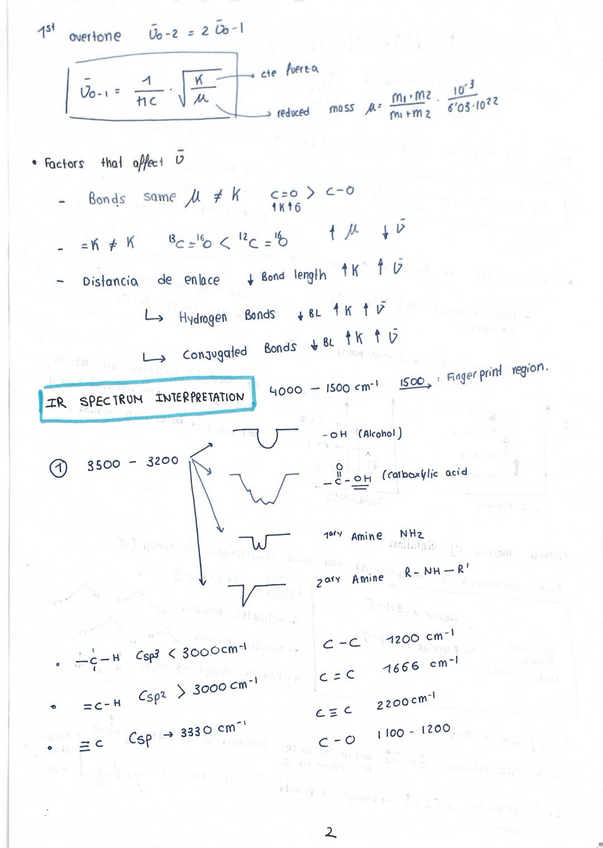 1st overtone ῡ0-2 = 2 ῡ0-1
ῡ0-1 = 1/πc · √(K/μ) → cte fuerza
→ reduced mass μ = m1·m2/m1+m2 · 10^-3/6'03·10^22
• Factors that affect ῡ
- Bonds same μ ≠ K C=O > C-O
↑K↑6
- =K ≠ K ¹³C=¹⁶O < ¹²C=¹⁶O ↑ μ ↓ ῡ
- Distancia de enlace ↓ Bond length ↑K ↑ ῡ
↳ Hydrogen Bonds ↓BL ↑K ↑ ῡ
↳ Conjugated Bonds ↓BL ↑K ↑ ῡ
IR SPECTRUM INTERPRETATION 4000 - 1500 cm-1 1500→ : Finger print region.
-OH (Alcohol)
① 3500 - 3200
O
-C-OH (carboxylic acid
1ary Amine NH2
2ary Amine R-NH-R'
• -C-H Csp3 < 3000cm-1 C-C 1200 cm-1
• =C-H Csp2 > 3000 cm-1 C=C 1666 cm-1
• ≡C Csp → 3330 cm-1 C≡C 2200cm-1
C-O 1100 - 1200
2